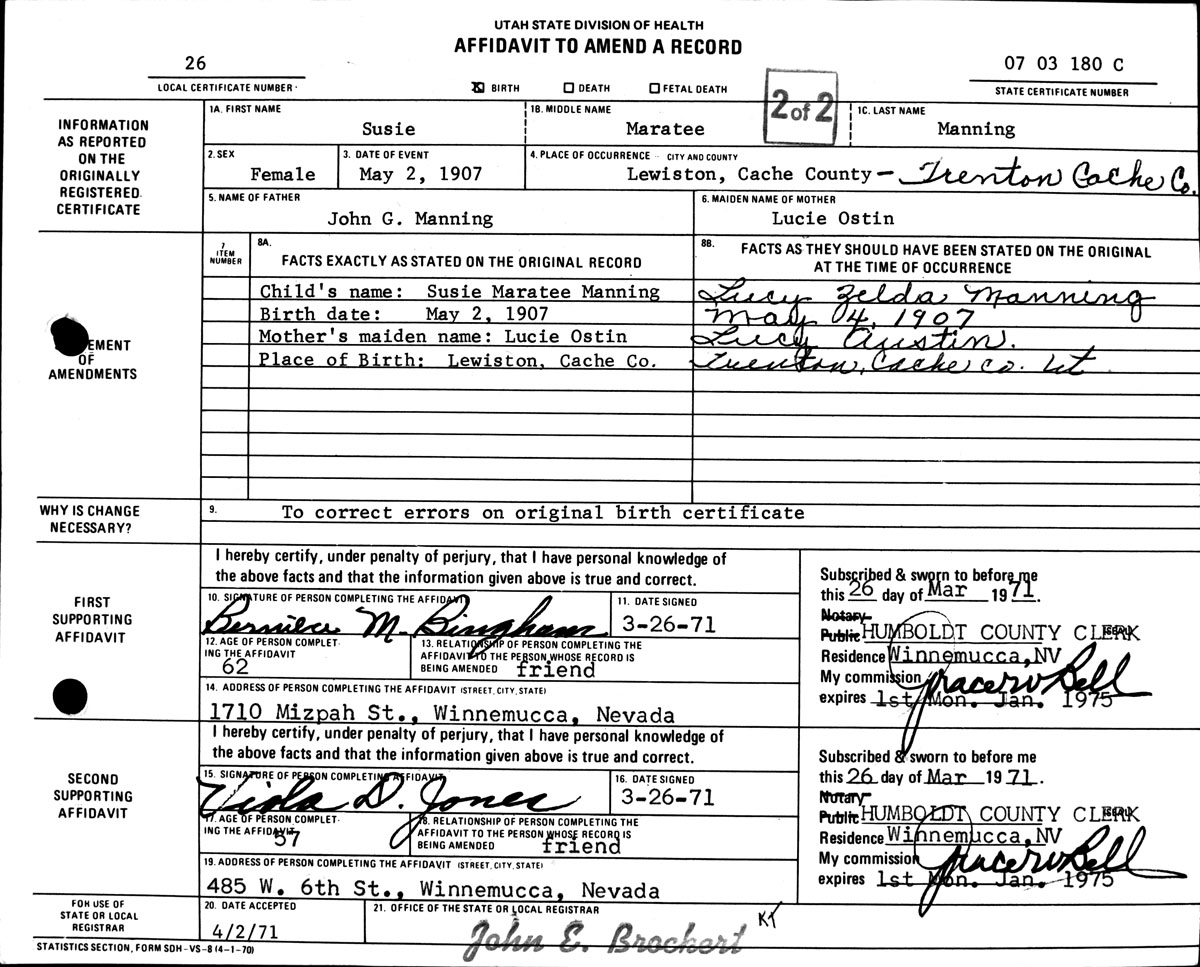 UTAH STATE DIVISION OF HEALTH
AFFIDAVIT TO AMEND A RECORD
26
LOCAL CERTIFICATE NUMBER
☒ BIRTH ☐ DEATH ☐ FETAL DEATH
07 03 180 C
STATE CERTIFICATE NUMBER
2 of 2
INFORMATION AS REPORTED ON THE ORIGINALLY REGISTERED CERTIFICATE
1A. FIRST NAME 1B. MIDDLE NAME 1C. LAST NAME
Susie Maratee Manning
2. SEX 3. DATE OF EVENT 4. PLACE OF OCCURRENCE - CITY AND COUNTY
Female May 2, 1907 Lewiston, Cache County - Trenton Cache Co.
5. NAME OF FATHER 6. MAIDEN NAME OF MOTHER
John G. Manning Lucie Ostin
EMENT OF AMENDMENTS
7 ITEM NUMBER
8A. FACTS EXACTLY AS STATED ON THE ORIGINAL RECORD
8B. FACTS AS THEY SHOULD HAVE BEEN STATED ON THE ORIGINAL AT THE TIME OF OCCURRENCE
Child's name: Susie Maratee Manning Lucy Zelda Manning
Birth date: May 2, 1907 May 04, 1907
Mother's maiden name: Lucie Ostin Lucy Austin.
Place of Birth: Lewiston, Cache Co. Trenton, Cache Co. Ut
WHY IS CHANGE NECESSARY?
9. To correct errors on original birth certificate
FIRST SUPPORTING AFFIDAVIT
I hereby certify, under penalty of perjury, that I have personal knowledge of
the above facts and that the information given above is true and correct.
10. SIGNATURE OF PERSON COMPLETING THE AFFIDAVIT 11. DATE SIGNED
Berniece M. Bingham 3-26-71
12. AGE OF PERSON COMPLETING THE AFFIDAVIT
62
13. RELATIONSHIP OF PERSON COMPLETING THE AFFIDAVIT TO THE PERSON WHOSE RECORD IS BEING AMENDED friend
14. ADDRESS OF PERSON COMPLETING THE AFFIDAVIT (STREET, CITY, STATE)
1710 Mizpah St., Winnemucca, Nevada
Subscribed & sworn to before me
this 26 day of Mar 1971.
Notary
Public HUMBOLDT COUNTY CLERK
Residence Winnemucca, NV
My commission
expires 1st Mon. Jan. 1975
SECOND SUPPORTING AFFIDAVIT
I hereby certify, under penalty of perjury, that I have personal knowledge of
the above facts and that the information given above is true and correct.
15. SIGNATURE OF PERSON COMPLETING AFFIDAVIT 16. DATE SIGNED
Viola D. Jones 3-26-71
17. AGE OF PERSON COMPLETING THE AFFIDAVIT
57
18. RELATIONSHIP OF PERSON COMPLETING THE AFFIDAVIT TO THE PERSON WHOSE RECORD IS BEING AMENDED friend
19. ADDRESS OF PERSON COMPLETING THE AFFIDAVIT (STREET, CITY, STATE)
485 W. 6th St., Winnemucca, Nevada
Subscribed & sworn to before me
this 26 day of Mar 1971.
Notary
Public HUMBOLDT COUNTY CLERK
Residence Winnemucca, NV
My commission
expires 1st Mon. Jan. 1975
FOR USE OF STATE OR LOCAL REGISTRAR
20. DATE ACCEPTED 21. OFFICE OF THE STATE OR LOCAL REGISTRAR
4/2/71 John E. Brockert KT
STATISTICS SECTION, FORM SDH-VS-8 (4-1-70)